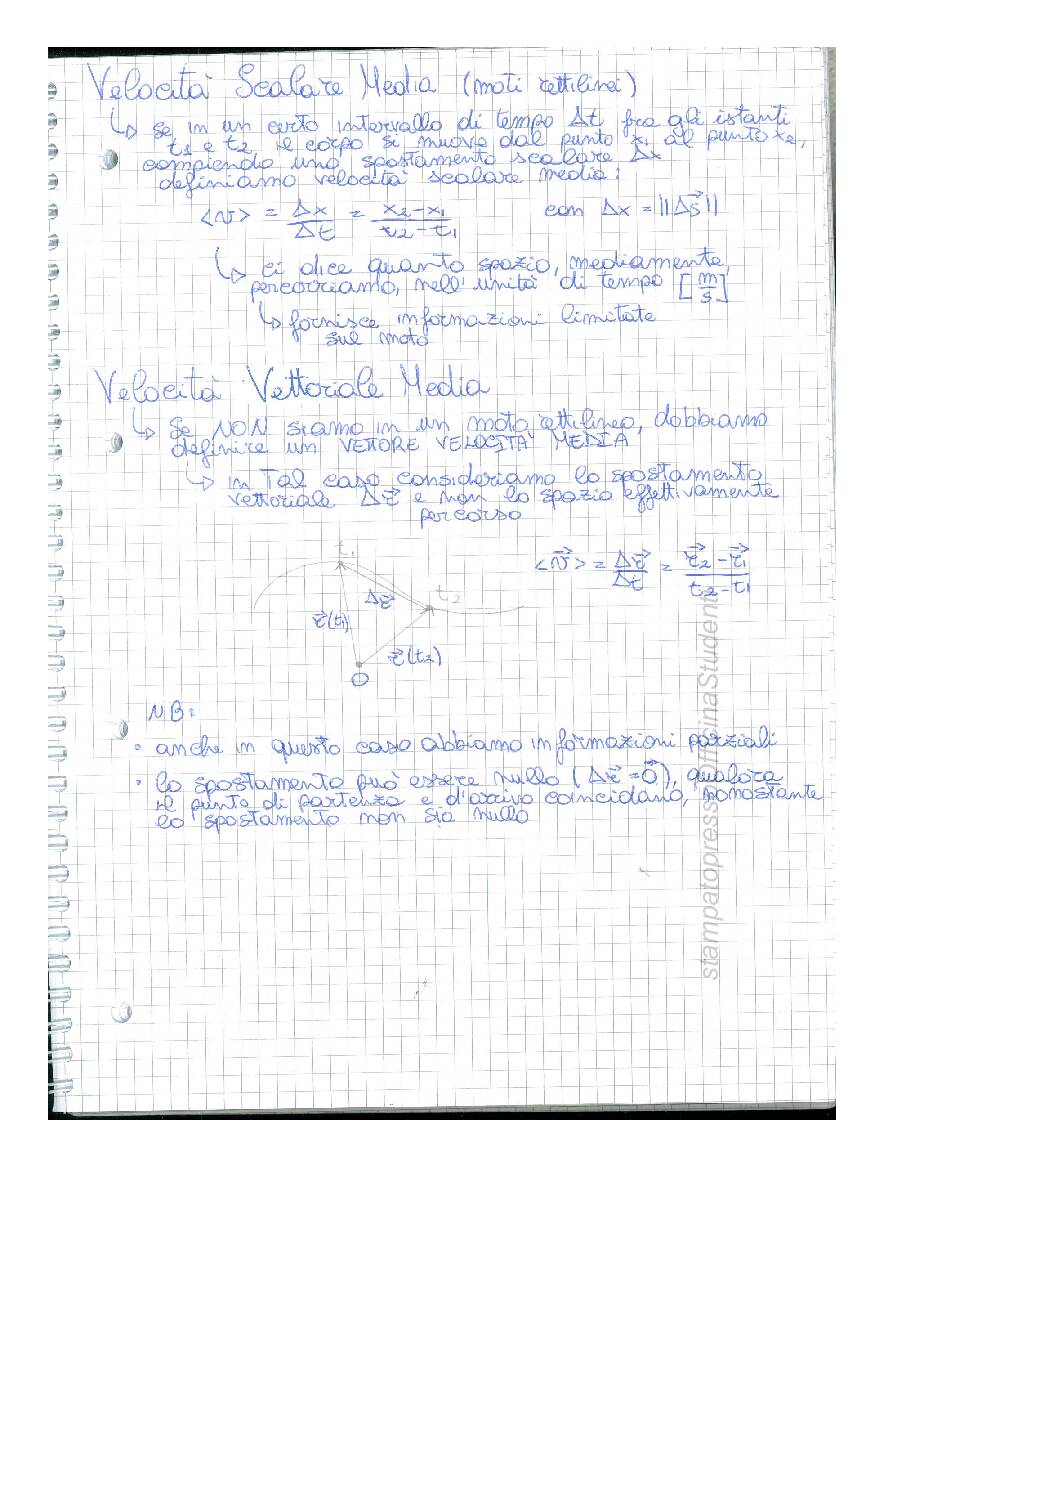 Velocità Scalare Media (moti rettilinei)
↳ se in un certo intervallo di tempo Δt fra gli istanti
t₁ e t₂ il corpo si muove dal punto x₁ al punto x₂,
compiendo uno spostamento scalare Δx
definiamo velocità scalare media:
<v> = Δx/Δt = (x₂-x₁)/(t₂-t₁) con Δx = ||Δs⃗||
↳ ci dice quanto spazio, mediamente,
percorriamo, nell'unità di tempo [m/s]
↳ fornisce informazioni limitate
sul moto
Velocità Vettoriale Media
↳ Se NON siamo in un moto rettilineo, dobbiamo
definire un VETTORE VELOCITÀ MEDIA
↳ in tal caso consideriamo lo spostamento
vettoriale Δr⃗ e non lo spazio effettivamente
percorso
<v⃗> = Δr⃗/Δt = (r⃗₂-r⃗₁)/(t₂-t₁)
t₁
Δr⃗
t₂
r⃗(t₁)
r⃗(t₂)
O
NB:
• anche in questo caso abbiamo informazioni parziali
• lo spostamento può essere nullo (Δr⃗ = 0⃗), qualora
il punto di partenza e d'arrivo coincidano, nonostante
lo spostamento non sia nullo
stampatopressoOfficinaStudenti